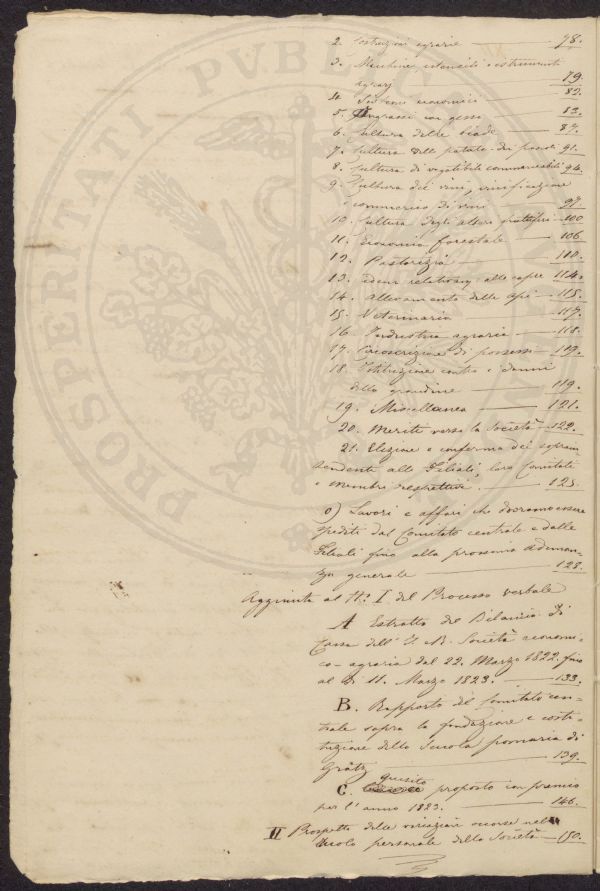 2. Costruzioni agrarie — 78.
3. Macchine utensili e istrumenti
agrarj 79.
4. Sistemi economici 82.
5. Ingrassi con gesso 83.
6. Cultura delle biade — 87.
7. Cultura delle patate dei 91.
8. Cultura di vegetabili commerciabili 94.
9. Cultura dei vini, vinificazione
e commercio di vini 97
10. Cultura degli alberi fruttiferi — 100
11. Economia forestale — 106
12. Pastorizia — 110.
13. relativamente alle capre 114.
14. Allevamento delle api — 115.
15. Veterinaria — 117.
16. Industria agraria — 118.
17. Circoscrizione di possessi — 119.
18. Istituzione contro i danni
della grandine — 119.
19. Miscellanea — 121.
20. Meriti verso la Società — 122.
21. Elezione e conferma dei soprain-
tendenti alle Filiali, loro Comitati
e membri rispettivi. — 125.
o) Lavori e affari che dovranno essere
spediti dal Comitato centrale e dalle
Filiali fino alla prossima adunan-
za generale — 128.
Aggiunta al N.º I del Processo verbale
A Estratto del Bilancio di
Cassa dell' I. R. Società economi-
co-agraria dal 22. Marzo 1822. fino
al dì 11. Marzo 1823. — 133.
B. Rapporto del Comitato cen-
trale sopra la fondazione e costi-
tuzione della Scuola pomaria di
Grätz — 139.
C. quesito proposto con premio
per l'anno 1823. — 146.
II Prospetto delle variazioni occorse nel
ruolo personale della Società — 150.
PROSPERITATI PVBLICAE